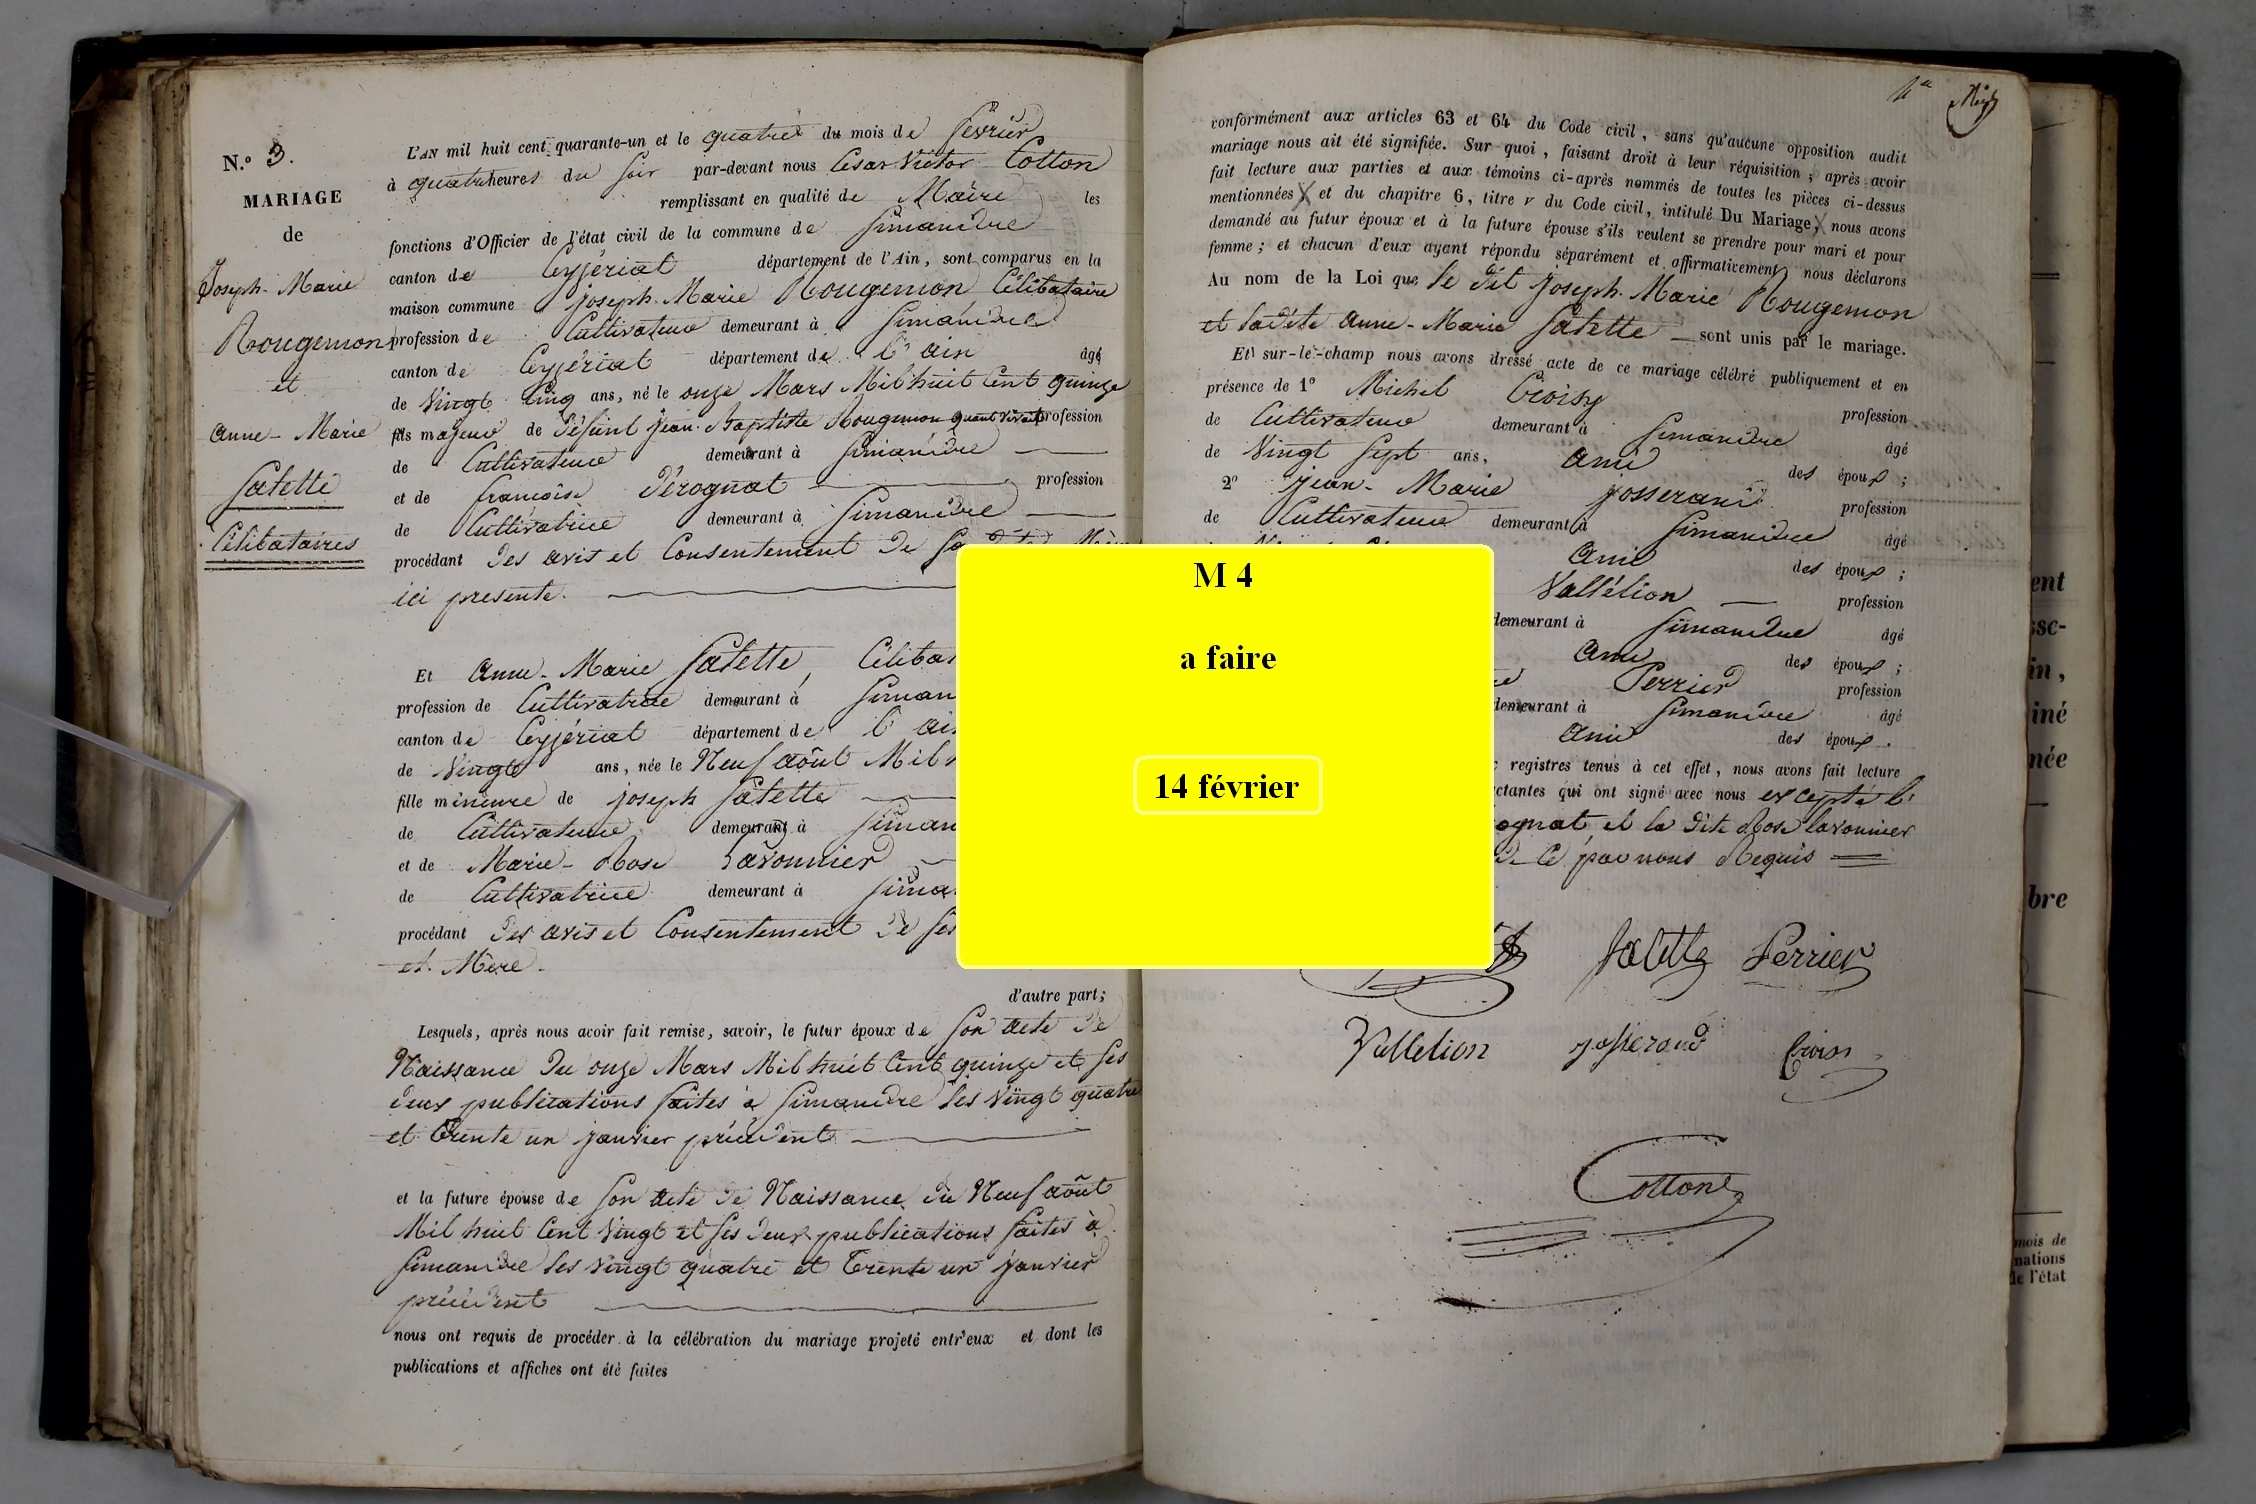 N.º 3.
MARIAGE
de
Joseph-Marie
Rougemon
et
Anne-Marie
Salette
Célibataires
L'AN mil huit cent quarante-un et le quatre du mois de février
à quatre heures du soir par-devant nous César Victor Cotton
remplissant en qualité de Maire les
fonctions d'Officier de l'état civil de la commune de Simandre
canton de Ceyzériat département de l'Ain, sont comparus en la
maison commune Joseph-Marie Rougemon Célibataire
profession de Cultivateur demeurant à Simandre
canton de Ceyzériat département de l'ain âgé
de Vingt Cinq ans, né le onze Mars Mil huit Cent quinze
fils majeur de Défunt jean-Baptiste Rougemon quant vivait profession
de Cultivateur demeurant à Simandre
et de françoise Dérognat profession
de Cultivatrice demeurant à Simandre
procédant des avis et Consentement de Sa dite Mère
ici presente.
Et Anne-Marie Salette, Célibat
profession de Cultivatrice demeurant à Siman
canton de Ceyzériat département de l'ai
de Vingt ans, née le Neuf août Mil
fille mineure de joseph Salette
de Cultivateur demeurant à Siman
et de Marie-Rose Lavonnier
de Cultivatrice demeurant à Sima
procédant des avis et Consentement de ses
et Mère.
d'autre part;
Lesquels, après nous avoir fait remise, savoir, le futur époux de Son acte de
Naissance du onze Mars Mil huit Cent quinze et ses
deux publications faites à Simandre les Vingt quatre
et trente un janvier précédent
et la future épouse de Son acte de Naissance du Neuf août
Mil huit Cent Vingt et ses deux publications faites à
Simandre les vingt quatre et trente un janvier
précédent
nous ont requis de procéder à la célébration du mariage projeté entr'eux et dont les
publications et affiches ont été faites
conformément aux articles 63 et 64 du Code civil, sans qu'aucune opposition audit
mariage nous ait été signifiée. Sur quoi, faisant droit à leur réquisition; après avoir
fait lecture aux parties et aux témoins ci-après nommés de toutes les pièces ci-dessus
mentionnées, et du chapitre 6, titre v du Code civil, intitulé Du Mariage, nous avons
demandé au futur époux et à la future épouse s'ils veulent se prendre pour mari et pour
femme; et chacun d'eux ayant répondu séparément et affirmativement nous déclarons
Au nom de la Loi que le dit joseph-Marie Rougemon
et ladite Anne-Marie Salette sont unis par le mariage.
Et sur-le-champ nous avons dressé acte de ce mariage célébré publiquement et en
présence de 1º Michel Croisy profession
de Cultivateur demeurant à Simandre âgé
de Vingt Sept ans, ami des époux;
2º jean-Marie josserand profession
de Cultivateur demeurant à Simandre âgé
ami des époux;
Vallélion profession
demeurant à Simandre âgé
ami des époux;
Perrier profession
demeurant à Simandre âgé
ami des époux.
registres tenus à cet effet, nous avons fait lecture
ctantes qui ont signé avec nous excepté l
ognat et la dite Rose Lavonnier
de Ce par nous Requis
Salette Perrier
Vallelion josserand Croisy
Cotton
M 4
a faire
14 février
ent
sse-
in,
iné
née
bre
mois de
nations
de l'état